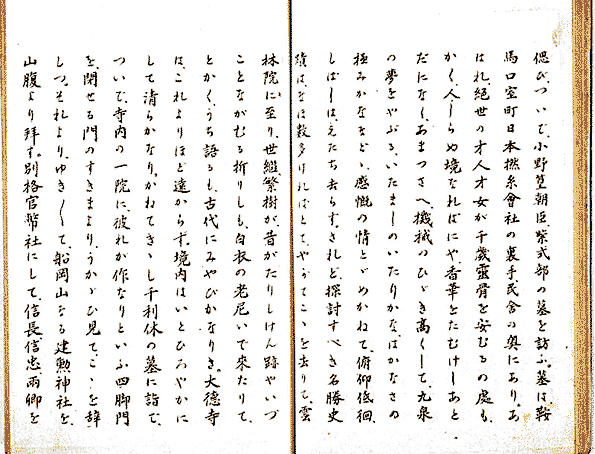 偲び、ついで、小野篁朝臣、紫式部の墓を訪ふ。墓は、鞍
馬口室町日本撚糸會社の裏手民舎の奥にあり。あ
はれ、絶世の才人才女が千歳靈骨を安むるの處も、
かく、人しらぬ境なればにや、香華をたむけしあと
だになく、あまつさへ、機械のひゞき高くして、九泉
の夢をやぶる、いたましのいたりかな、はかなさの
極みかなと、感慨の情とゞめかねて、俯仰低徊、
しばしは、えたち去らず。されど、探討すべき名勝史
蹟はなほ数多ければとて、やがてこゝを去りて、雲
林院に至り、世継繁樹が、昔がたりしけん跡やいづ
ことながむる折りしも、白衣の老尼いで來たりて、
とかく、うち語るも、古代にみやびかなりき。大德寺
は、これよりほど遠からず。境内はいとひろやかに
して清らかなり。かねてきゝし千利休の墓に詣で、
ついで、寺内の一院に、彼れが作なりといふ四脚門
を、閉せる門のすきまより、うかゞひ見て、こゝを辞
しつ。それより、ゆき〳〵て、船岡山なる建勲神社を、
山腹より拜す。別格官幣社にして、信長、信忠、兩卿を